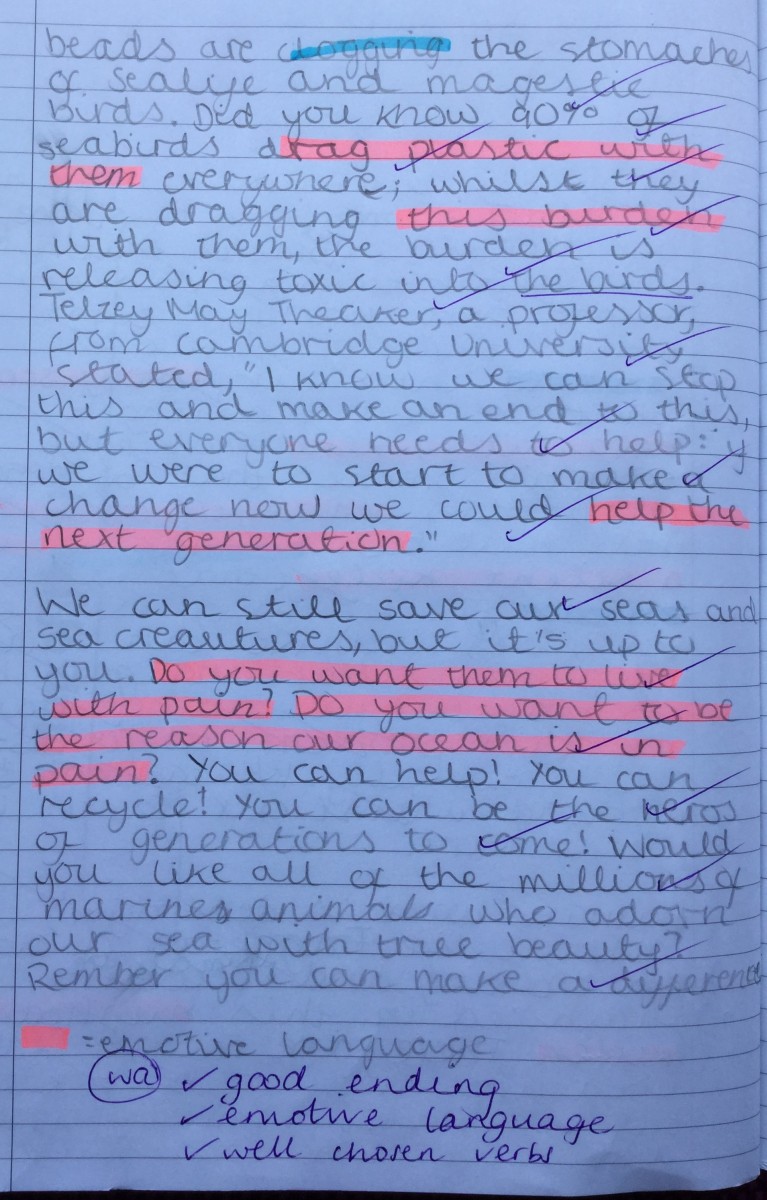 beads are clogging the stomaches
of sealife and magestic
birds. Did you know 90% of
seabirds drag plastic with
them everywhere; whilst they
are dragging this burden
with them, the burden is
releasing toxic into the birds.
Telzey May Theaker, a professor,
from Cambridge University
stated, "I know we can stop
this and make an end to this,
but everyone needs to help: if
we were to start to make a
change now we could help the
next generation."
We can still save our seas and
sea creautures, but it's up to
you. Do you want them to live
with pain? Do you want to be
the reason our ocean is in
pain? You can help! You can
recycle! You can be the heros
of generations to come! Would
you like all of the millions of
marines animals who adorn
our sea with tree beauty?
Rember you can make a difference
=emotive language
wa ✓ good ending
✓ emotive language
✓ well chosen verbs